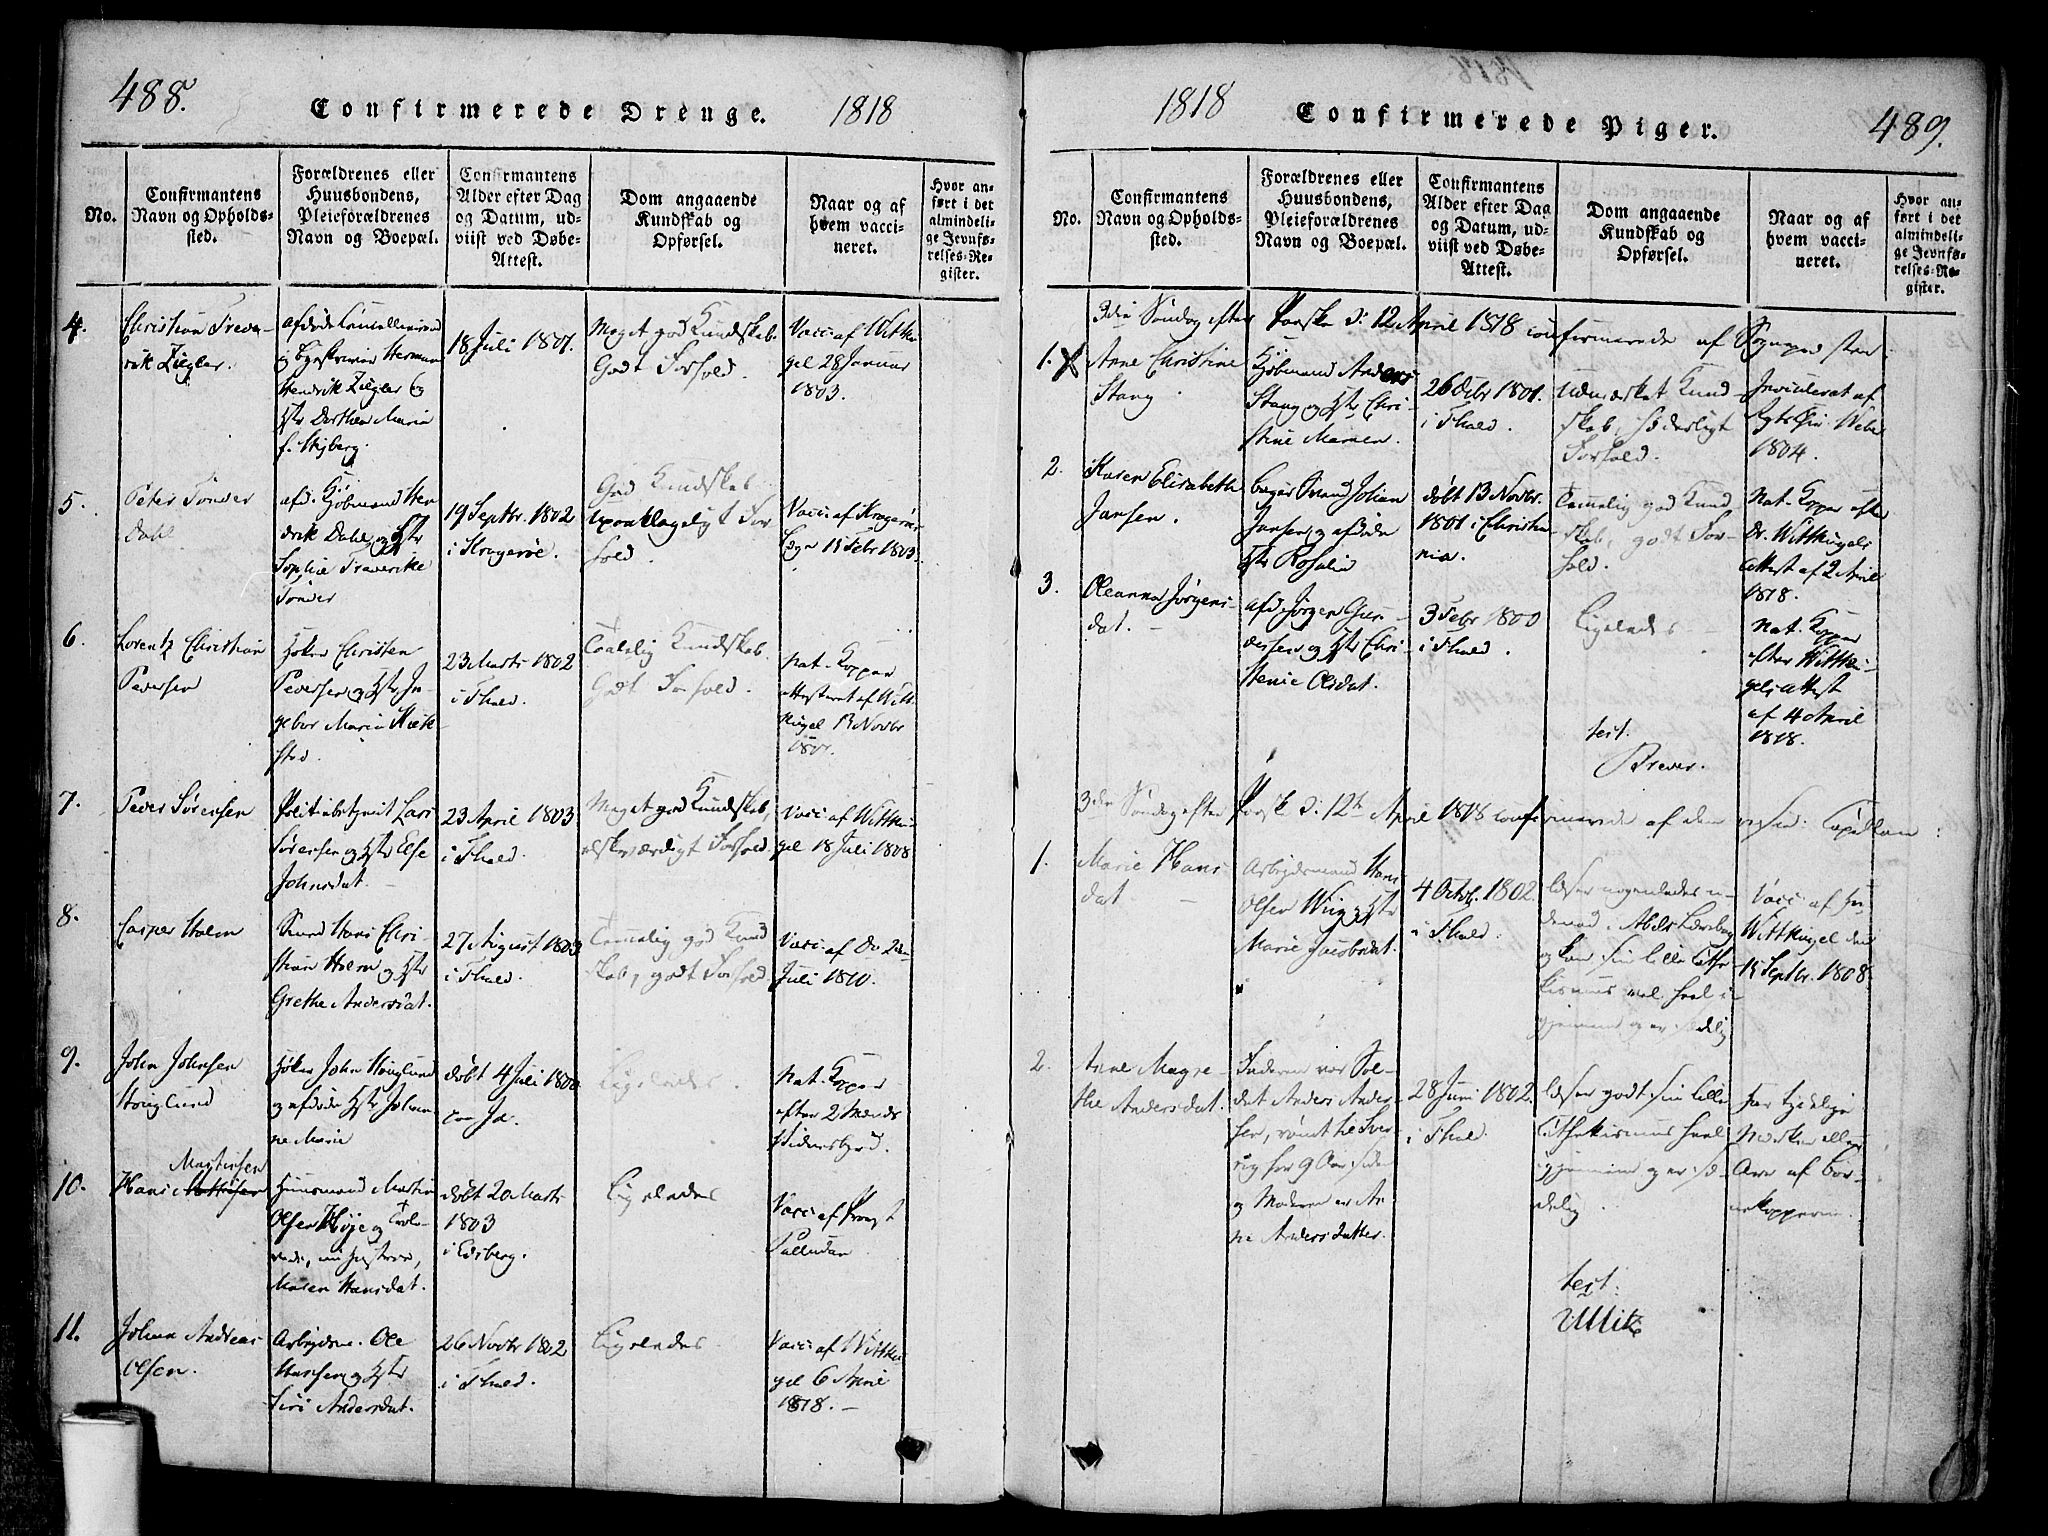 488.
Confirmerede Drenge.
1818
No.
Confirmantens
Navn og Opholds-
sted.
Forældrenes eller
Huusbondens,
Pleieforældrenes
Navn og Boepæl.
Confirmantens
Alder efter Dag
og Datum, ud-
viist ved Døbe-
Attest.
Dom angaaende
Kundskab og
Opførsel.
Naar og af
hvem vacci-
neret.
Hvor an-
ført i det
almindeli-
ge Jevnfø-
relses-Re-
gister.
4.
Christian Frede-
rik Ziegler.
afdøde Cancelliraad
og Byeskriver Herman
Hendrik Ziegler og
Hstr Dorthea Maria
f. Stiberg.
18 Juli 1801.
Meget god Kundskab.
Godt Forhold.
Vacc. af Wittku-
gel 28 Januar
1803.
5.
Peter Tønder
Dahl
afd. Kjøbmand Hen
drik Dahl og Hstr
Sophie Frederikke
Tønder
19 Septbr. 1802
i Kragerøe.
God Kundskab
upaaklageligt For
hold.
Vacc. af
15 Febr 1803.
6.
Lorentz Christian
Pedersen
Høker Christen
Pedersen og Hstr In-
gebor Maria
sted.
23 Marts 1802
i Fhald.
Taalelig Kundskab.
Godt Forhold.
Nat. Kopper
attesteret af Witt
kugel 13 Novbr
1801.
7.
Peder Sørensen
Politiebetjent Lars
Sørensen og Hstr Else
Johnsdat.
23 April 1803
i Fhald.
Meget god Kundskab,
elskværdigt Forhold.
Vacc. af Wittku-
gel 18 Juli 1808.
8.
Casper Holm
Hans Chri-
stian Holm og Hstr
Grethe Andersdat.
27 August 1803
i Fhald.
Temmelig god Kund
skab, godt Forhold.
Vacc. af Do 2den
Juli 1810.
9.
John Johnsen
Houglund
Høker John Houglund
og afdøde Hstr Johan
ne Marie
døbt 4 Juli 1800
Ligeledes.
Nat. Kopper
efter 2 Mænds
Vidnesbyrd.
10.
Martinsen
Hans
Huusmand Martin
Olsen Høje og
Maren Hansdat.
døbt 20 Marts
1803
i Edsberg.
Ligeledes
Vacc. af Provst
Palludan
11.
Johan Andreas
Olsen.
Arbejdsm. Ole
Hansen og Hstr
Siri Andersdat.
26 Novbr 1802
i Fhald.
Ligeledes
Vacc. af Wittku-
gel 6 April
1818. —
1818
Confirmerede Piger.
489.
No.
Confirmantens
Navn og Opholds-
sted.
Forældrenes eller
Huusbondens,
Pleieforældrenes
Navn og Boepæl.
Confirmantens
Alder efter Dag
og Datum, ud-
viist ved Døbe-
Attest.
Dom angaaende
Kundskab og
Opførsel.
Naar og af
hvem vacci-
neret.
Hvor an-
ført i det
almindeli-
ge Jevnfø-
relses-Re-
gister.
3die Søndag efter Paaske d: 12 April 1818 confirmerede af Sognepresten:
1. X
Anne Christine
Stang.
Kjøbmand Anders
Stang og Hstr Chri-
stine Marie
26 Octbr 1801.
i Fhald.
Udmærket Kund
skab, hæderligt
Forhold.
Inoculeret af
1804.
2.
Karen Elisabeth
Jansen.
Johan
Jansen og afdøde
Hstr Rosalia
døbt 13 Novbr.
1801 i Christia-
nia.
Temmelig god Kund
skab, godt For-
hold.
Nat. Kopper efter
Dr. Wittkugels
Attest af 2 April
1818.
3.
Oleanna Jørgens-
dat. —
afd. Jørgen Gun-
dersen og Hstr Chri-
stenie Olsdat.
3 Febr 1800
i Fhald.
Ligeledes
Nat. Kopper
efter Wittku-
gels Attest
af 4 April
1818.
test.
3die Søndag efter Paask d: 12te April 1818 confirmerede af den resid: Capellan:
1.
Marie Hans
dat. —
Arbejdsmand Hans
Olsen og Hstr
Marie Jacobsdat.
4 Octbr. 1802.
i Fhald.
læser nogenledes u-
denad Lærebog
og kan sin lille Cathe
kismus vel heel i-
gjennem og er sædelig
Vacc. af
Wittkugel den
15 Septbr. 1808.
2.
Anne Magre-
the Andersdat.
Faderen var Sol-
dat Anders Ander-
sen, rømt til Sver-
rig for 9 Aar siden
og Moderen er An-
ne Andersdatter.
28 Juni 1802.
i Fhald.
læser godt sin lille
Cathekismus heel
igjennem og er sæ-
delig.
har tydelige
Mærker eller
Arr af Bør-
nekopperne.
test: